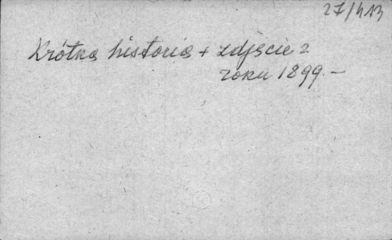 27/413
Krótka historia + zdjęcie z
roku 1899.-